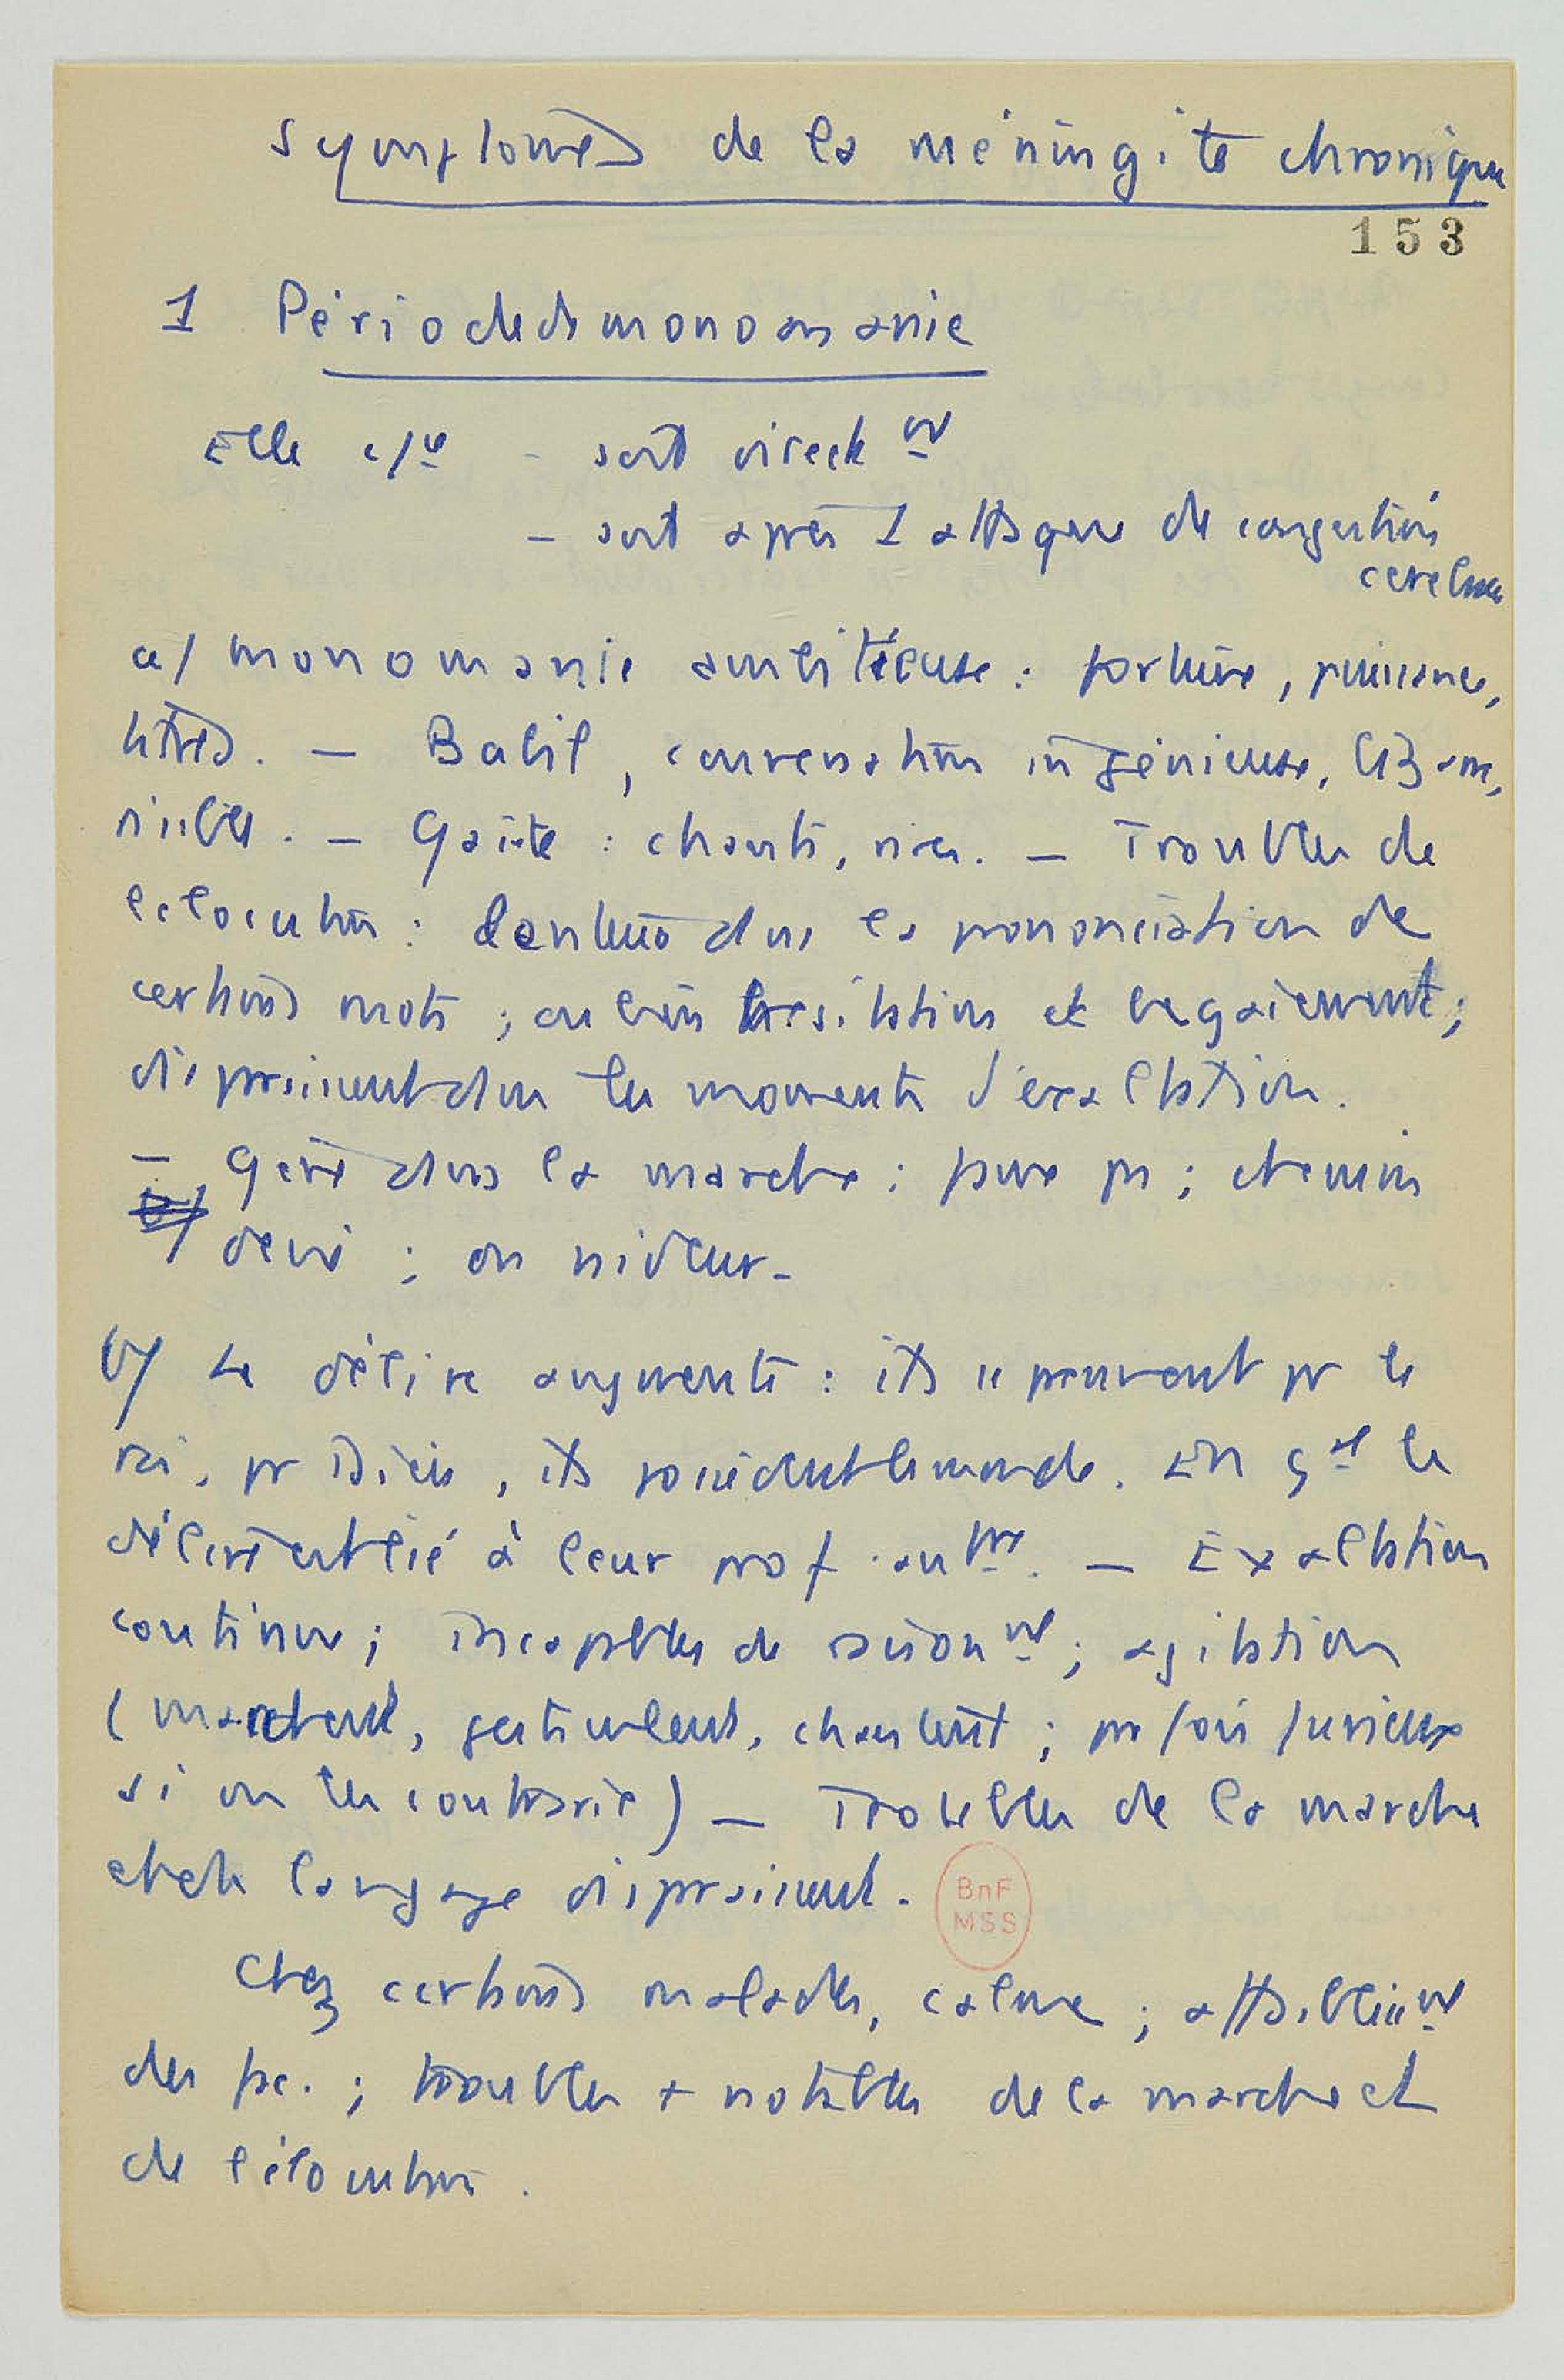 Symptomes de la méningite chronique
153
1 Période de monomanie
Elle c/ce - soit directemt
- soit après 1 attaque de congestion
cerebrale
a/ monomanie ambitieuse : fortune, puissance,
titres. — Babil, conversation ingénieuse,
risibles. — Gaité : chants, rires. — Troubles de
l'elocution : lenteur dans la prononciation de
certains mots ; ou bien hesitation et begaiement ;
disparaissent dans les moments d'exaltation.
— Gène dans la marche : ; chemin
b/ devié ; ou raideur.
b/ Le délire augmente : ils se prennent pr le
roi, pr Dieu, ils possèdent le monde. En gal le
délire est lié à leur prof. antre. — Exaltation
continue ; incapables de raisonmt ; agitation
(marchent, gesticulent, chantent ; parfois furieux
si on les contrarie) — Troubles de la marche
et de langage disparaissent.
BnF
MSS
Chez certains malades, calme ; affaiblissmt
des fac. ; troubles + notables de la marche et
de l'élocution.